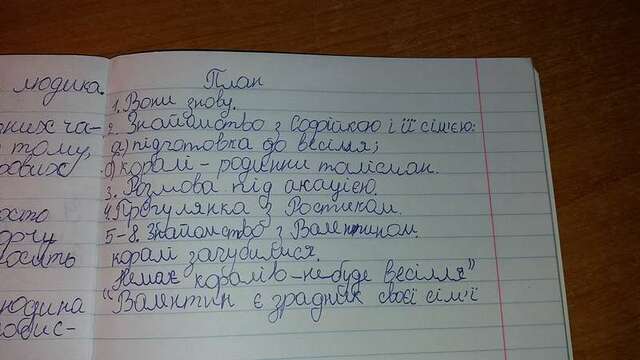 людика.
рних ча-
тому,
рових
осто
орчу
носить
юдина
овис-
План
1. Вони знову.
2. Знайомство з Софійкою і її сім'єю:
а) підготовка до весілля;
б) коралі – родинни талісман.
3. Розмова під акацією.
4. Прогулянка з Ростиком.
5–8. Знайомство з Валентином.
коралі загубилися.
"Немає коралів – не буде весілля"
"Валентин є зрадник своєї сім'ї